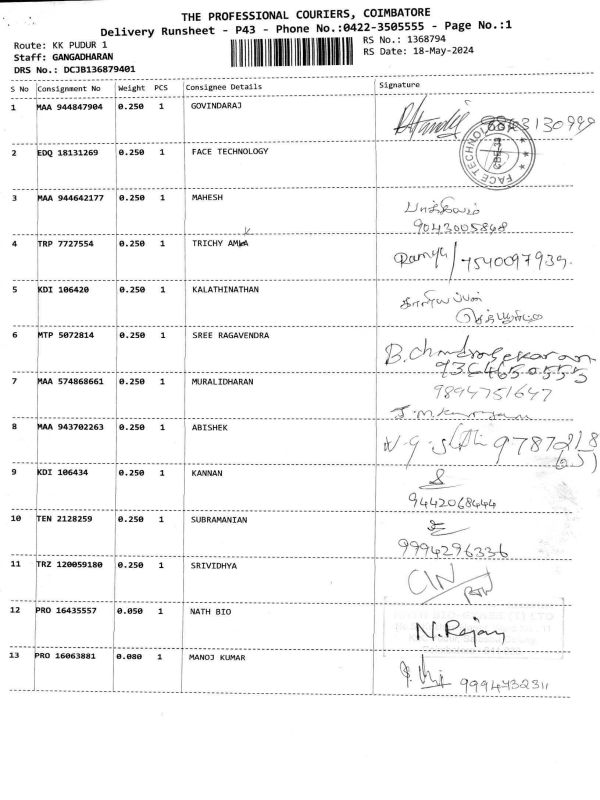 THE PROFESSIONAL COURIERS, COIMBATORE
Delivery Runsheet - P43 - Phone No.:0422-3505555 - Page No.:1
Route: KK PUDUR 1
RS No.: 1368794
Staff: GANGADHARAN
RS Date: 18-May-2024
DRS No.: DCJB136879401
S No Consignment No Weight PCS Consignee Details Signature
1 MAA 944847904 0.250 1 GOVINDARAJ
FACE TECHNOLOGY CBE-38
2 EDQ 18131269 0.250 1 FACE TECHNOLOGY
3 MAA 944642177 0.250 1 MAHESH
9043005848
4 TRP 7727554 0.250 1 TRICHY AMLA
Ramya / 7540097939.
5 KDI 106420 0.250 1 KALATHINATHAN
காளியப்பன்
6 MTP 5072814 0.250 1 SREE RAGAVENDRA
B.Chandrasekaran
9364650555
7 MAA 574868661 0.250 1 MURALIDHARAN
9894751647
8 MAA 943702263 0.250 1 ABISHEK
9787218
9 KDI 106434 0.250 1 KANNAN
9442068444
10 TEN 2128259 0.250 1 SUBRAMANIAN
9994296336
11 TRZ 120059180 0.250 1 SRIVIDHYA
12 PRO 16435557 0.050 1 NATH BIO
N.Rajan
13 PRO 16063881 0.080 1 MANOJ KUMAR
9994732311